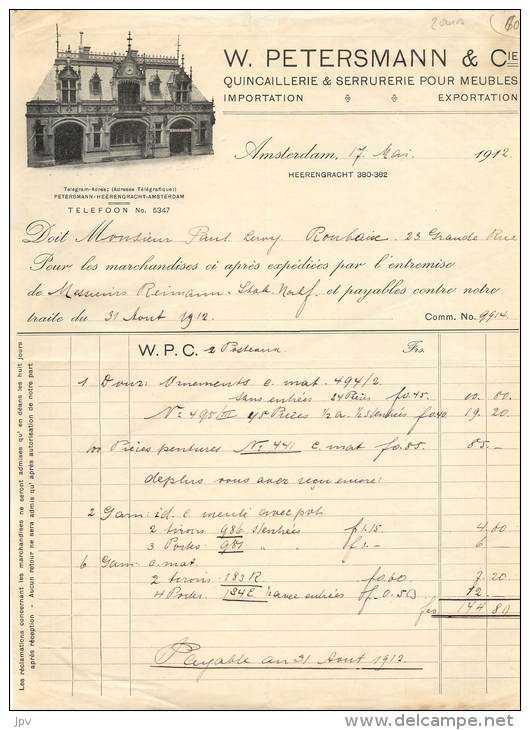 W. PETERSMANN & CIE
QUINCAILLERIE & SERRURERIE POUR MEUBLES
IMPORTATION EXPORTATION
Amsterdam, 17 Mai 1912
HEERENGRACHT 380-382
Telegram-Adres: (Adresse Télégrafique:)
PETERSMANN-HEERENGRACHT-AMSTERDAM
TELEFOON No. 5347
Doit Monsieur Paul Leroy Roubaix 23 Grande Rue
Pour les marchandises ci après expédiées par l'entremise
de Messieurs Reimann et payables contre notre
traite du 31 Aout 1912. Comm. No. 9914
W. P. C. 2 Postcaux Frs.
1 Douz: Ornements o. mat. 494/2
sans entrées 24 Pièces fo.45 10.80
No 495/III 48 Pièces fo.40 19.20
100 Pièces pentures No 441 c. mat fo.85 85.-
depuis vous avez reçu encore:
2 Garn: id. c. avec
2 tirons 986 s/entrées f1.15 4.60
3 Portes 981 " " f1.- 6
6 Garn: o. mat.
2 tirons 183 R. fo.60 7.20
4 Portes 184 E. ½ avec entrées fo.50 12.-
frs 144.80
Payable au 31 Aout 1912.
Les réclamations concernant les marchandises ne seront admises qu' en déans les huit jours
après réception - Aucun retour ne sera admis qu' après autorisation de notre part
jpv
delcampe.net